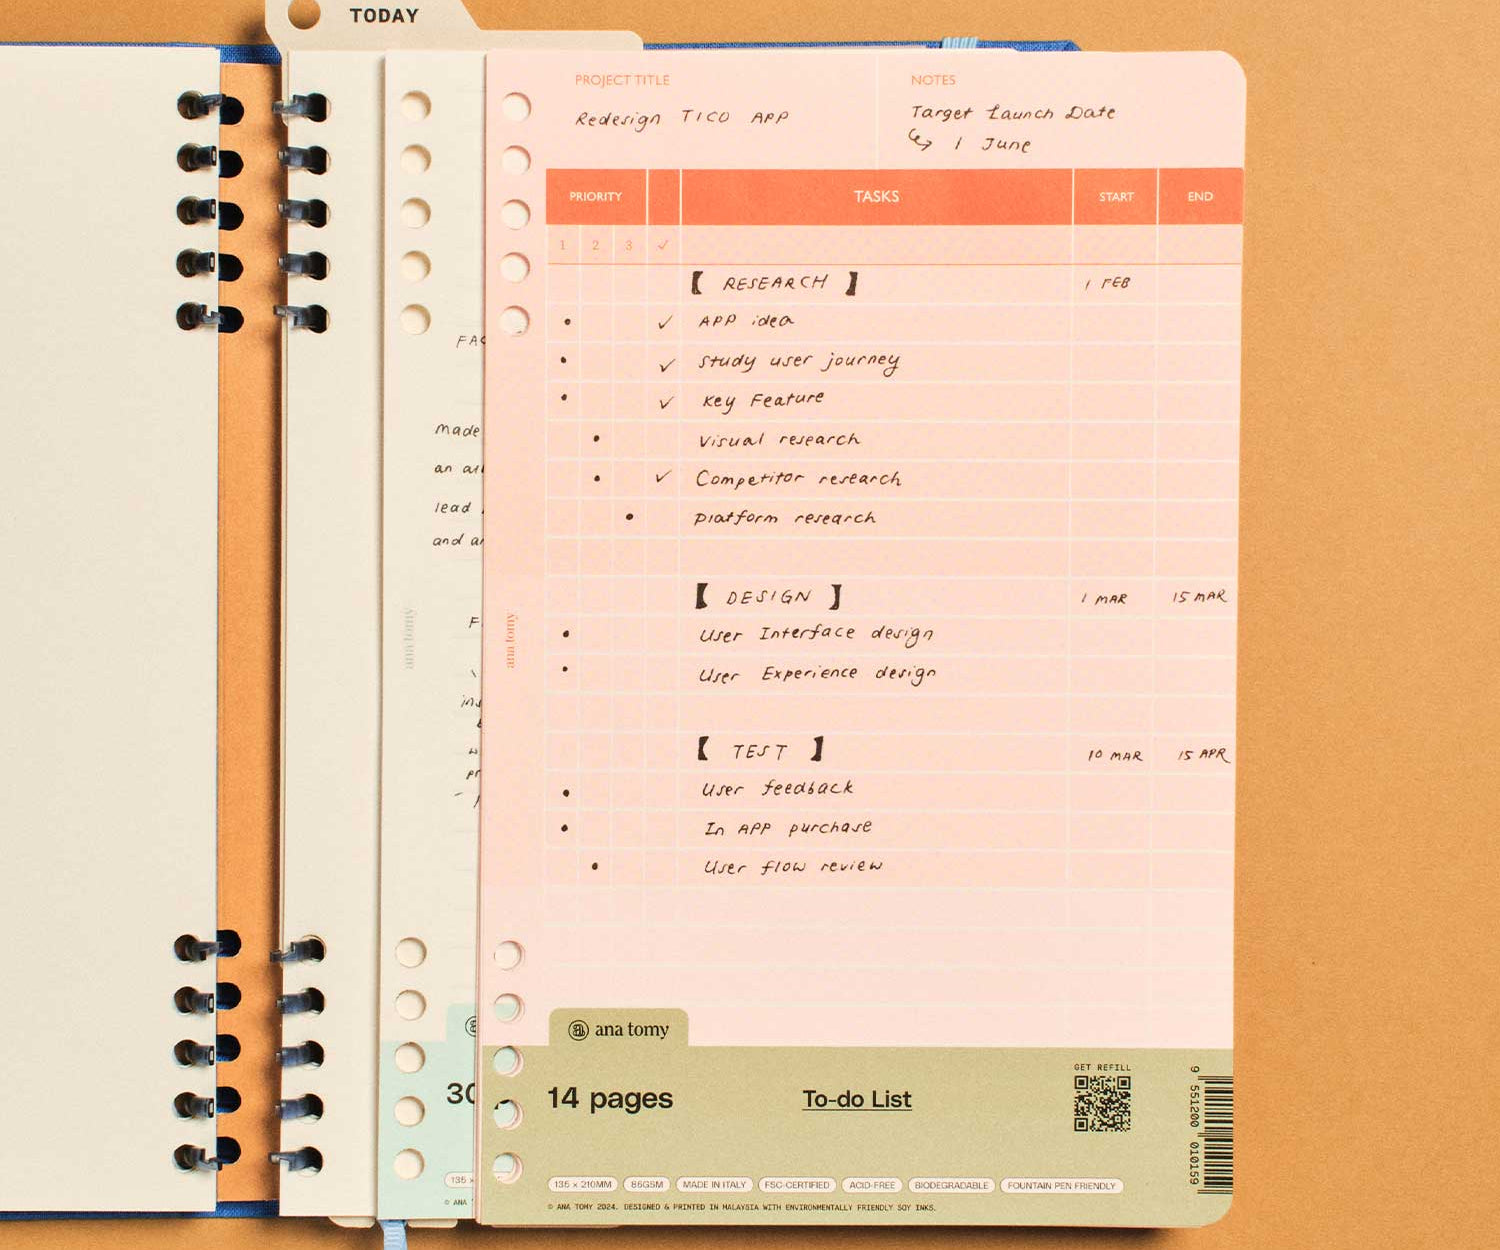 TODAY
PROJECT TITLE
Redesign TICO APP
NOTES
Target Launch Date
↳ 1 June
PRIORITY TASKS START END
1 2 3 ✓
【 RESEARCH 】 1 FEB
• ✓ APP idea
• ✓ Study user journey
• ✓ Key Feature
• Visual research
• ✓ Competitor research
• Platform research
【 DESIGN 】 1 MAR 15 MAR
• User Interface design
• User Experience design
【 TEST 】 10 MAR 15 APR
• User feedback
• In APP purchase
• User flow review
made
an
lead
and
ana tomy
ana tomy
ana tomy
14 pages
To-do List
GET REFILL
9 551200 010159
30
135 × 210MM 85GSM MADE IN ITALY FSC-CERTIFIED ACID-FREE BIODEGRADABLE FOUNTAIN PEN FRIENDLY
© ANA TOMY 2024. DESIGNED & PRINTED IN MALAYSIA WITH ENVIRONMENTALLY FRIENDLY SOY INKS.
135
© ANA